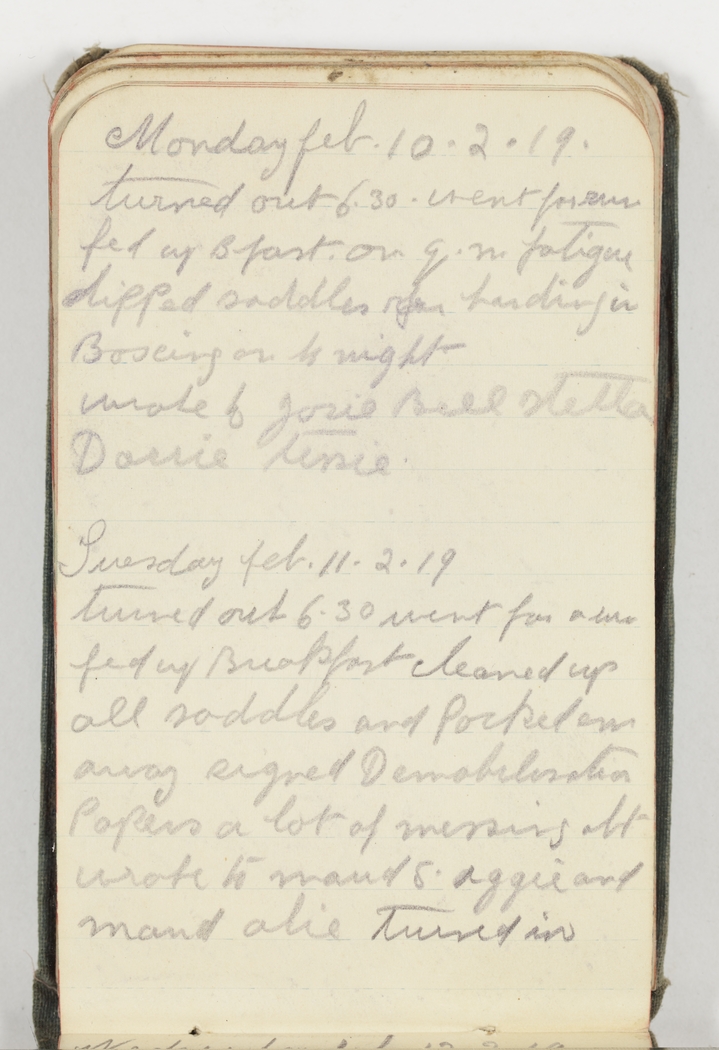 Monday feb. 10. 2. 19.
turned out 6.30. went for run
fed up B fast. on q. m fatigue
dipped saddles for handing in
Boxing on to night
wrote to Josie Bell Stella
Dorrie Tessie.
Tuesday feb. 11. 2. 19
turned out 6.30 went for a run
fed up Breakfast cleaned up
all saddles and Packed em
away signed Demobilisation
Papers a lot of messing abt
wrote to maud S. aggie and
maud alie turned in